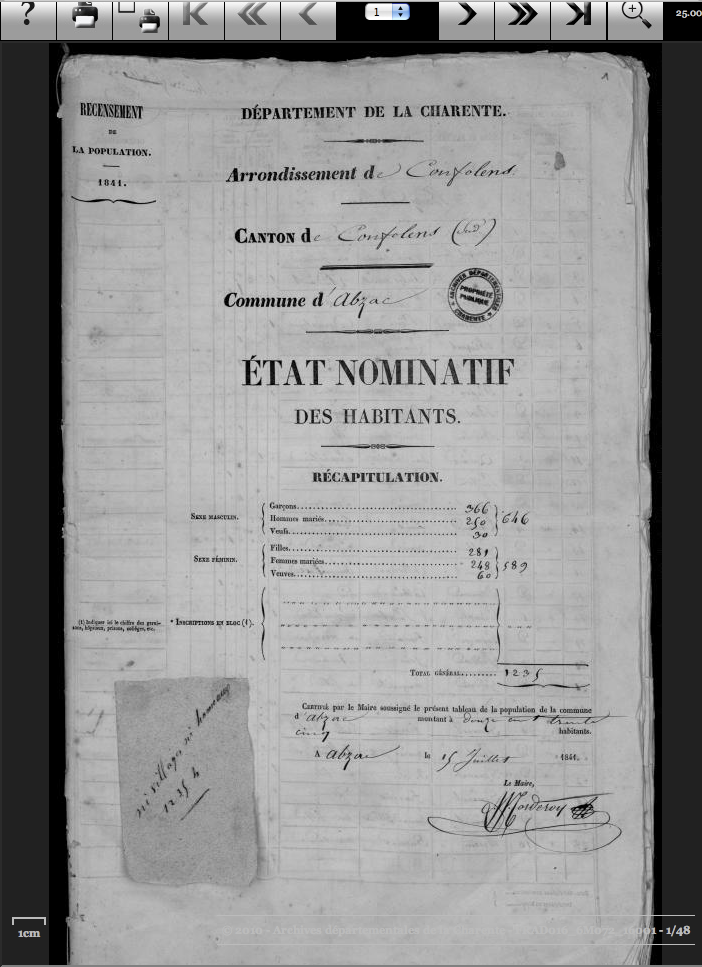 ?
1
25.00
1
RECENSEMENT
DE
LA POPULATION.
1841.
DÉPARTEMENT DE LA CHARENTE.
Arrondissement de Confolens
CANTON de Confolens (Sud)
Commune d'Abzac
ARCHIVES DÉPARTEMENTALES
PROPRIÉTÉ
PUBLIQUE
CHARENTE
ÉTAT NOMINATIF
DES HABITANTS.
RÉCAPITULATION.
SEXE MASCULIN.
Garçons 366
Hommes mariés 250
Veufs 30
646
SEXE FÉMININ.
Filles 281
Femmes mariées 248
Veuves 60
589
(1) Indiquer ici le chiffre des garni-
sons, hôpitaux, prisons, collèges, etc.
* INSCRIPTIONS EN BLOC (1).
TOTAL GÉNÉRAL 1235
CERTIFIÉ par le Maire soussigné le présent tableau de la population de la commune
d'abzac montant à douze cent trente
cinq habitants.
A abzac le 15 Juillet 1841.
Le Maire,
ni villages ni hameaux
1235 h
1cm
© 2010 - Archives départementales de la Charente - 1/48